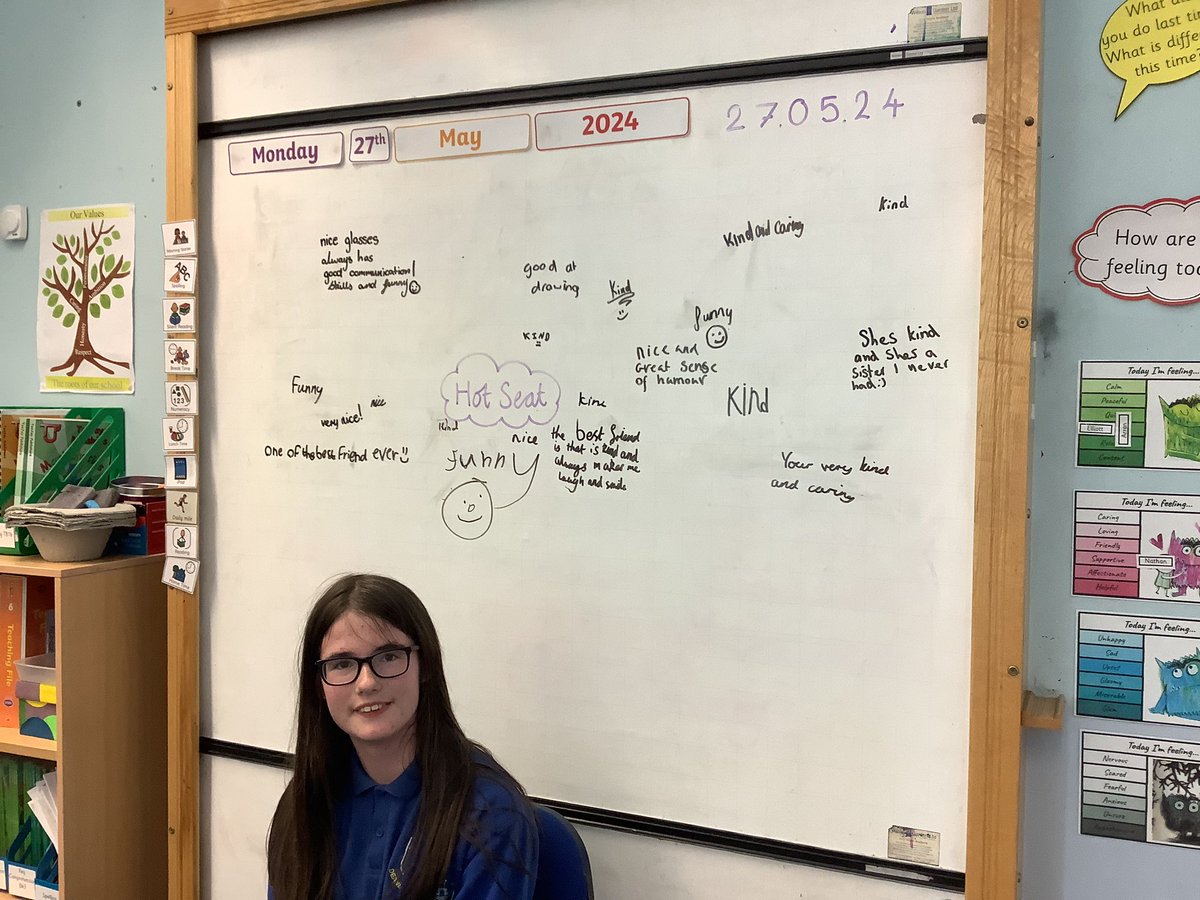 What
you do last
What is
this time
Monday 27th May 2024
27.05.24
Our Values
Respect
Honesty
The roots of our school
Spelling
Silent Reading
Break Time
Numeracy
Lunch Time
Daily mile
Reading
nice glasses
always has
good communication
skills and funny
good at
drawing
Kind
Kind and caring
kind
KIND
funny
nice and
Great sense
of humour
Shes kind
and shes a
sister I never
had:)
Funny
very nice!
nice
Kind
Hot Seat
kind
Kind
One of the best friend ever
nice
funny
the best friend
is that is kind and
always makes me
laugh and smile
Your very kind
and caring
How are
feeling
Today I'm feeling...
Calm
Peaceful
Elliott
Content
Today I'm feeling...
Caring
Loving
Friendly
Supportive
Affectionate
Helpful
Nathan
Today I'm feeling...
Unhappy
Sad
Upset
Gloomy
Miserable
Glum
Today I'm feeling...
Nervous
Scared
Fearful
Anxious
Unsure
6
Teaching File